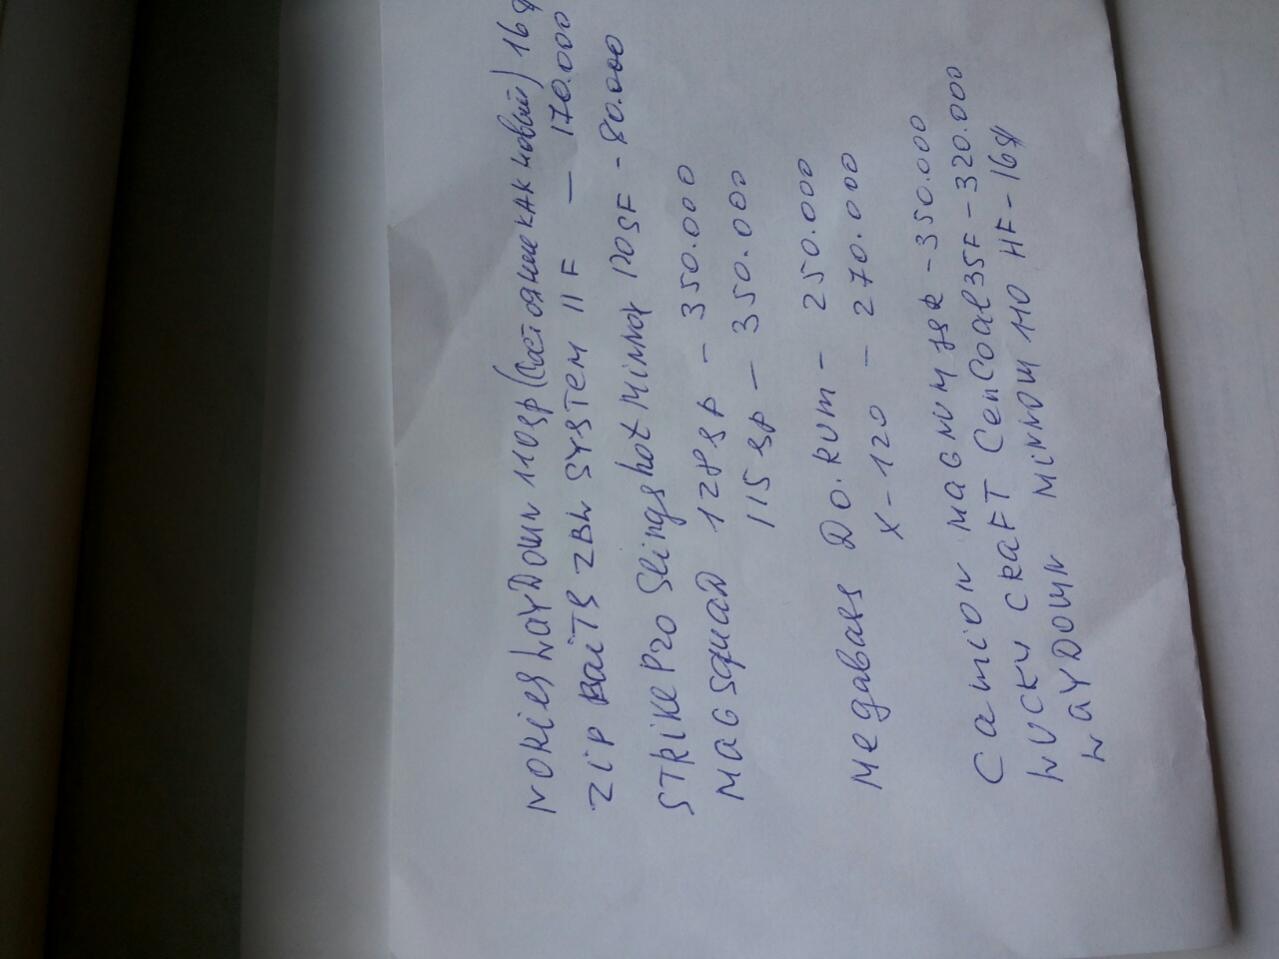 NORIES LAYDOWN 110SP (Состояние как новый) 16$
ZIP BAITS ZBL SYSTEM 11F — 170.000
STRIKE PRO Slingshot MINNOY 120SF - 80.000
MAG SQUAD 128SP - 350.000
115 SP — 350.000
Megabass DO. RUM - 250.000
X-120 - 270.000
CAMION MAGNUM - 350.000
LUCKY CRAFT 35F - 320.000
LAYDOWN MINNOW 110 HF - 16$